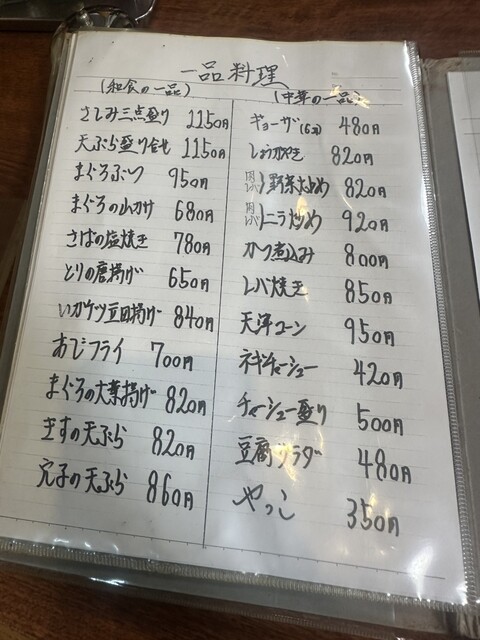 一品料理
(和食の一品)
さしみ三点盛り 1150円
天ぷら盛り合せ 1150円
まぐろぶつ 950円
まぐろの山かけ 680円
さばの塩焼き 780円
とりの唐揚げ 650円
いかゲソ豆田揚げ 840円
あじフライ 700円
まぐろの大葉揚げ 820円
きすの天ぷら 820円
穴子の天ぷら 860円
(中華の一品)
ギョーザ(6コ) 480円
しょうがやき 820円
野菜炒め 820円
ニラ炒め 920円
カツ煮込み 800円
レバ焼き 850円
天津コーン 950円
ネギチャーシュー 420円
チャーシュー盛り 500円
豆腐サラダ 480円
やっこ 350円